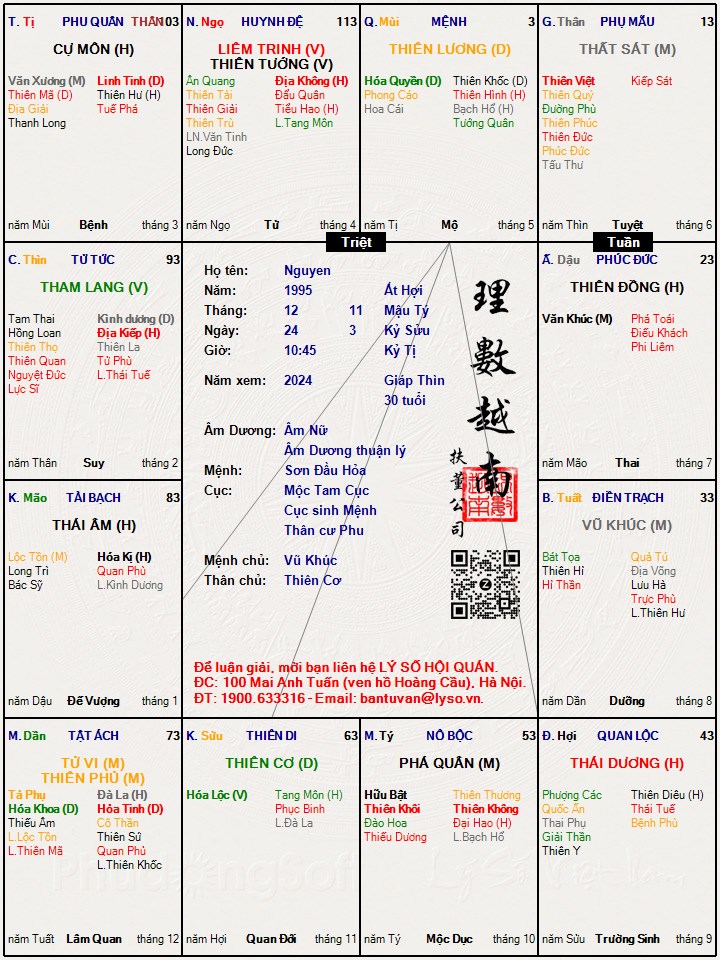 T. Tị PHU QUÂN THÂN 103
CỰ MÔN (H)
Văn Xương (M) Linh Tinh (D)
Thiên Mã (D) Thiên Hư (H)
Địa Giải Tuế Phá
Thanh Long
năm Mùi Bệnh tháng 3
N. Ngọ HUYNH ĐỆ 113
LIÊM TRINH (V)
THIÊN TƯỚNG (V)
Ân Quang Địa Không (H)
Thiên Tài Đẩu Quân
Thiên Giải Tiểu Hao (H)
Thiên Trù L.Tang Môn
LN.Văn Tinh
Long Đức
năm Ngọ Tử tháng 4
Q. Mùi MỆNH 3
THIÊN LƯƠNG (D)
Hóa Quyền (D) Thiên Khốc (D)
Phong Cáo Thiên Hình (H)
Hoa Cái Bạch Hổ (H)
Tướng Quân
năm Tị Mộ tháng 5
G. Thân PHỤ MẪU 13
THẤT SÁT (M)
Thiên Việt Kiếp Sát
Thiên Quý
Đường Phù
Thiên Phúc
Thiên Đức
Phúc Đức
Tấu Thư
năm Thìn Tuyệt tháng 6
Triệt
Tuần
C. Thìn TỬ TỨC 93
THAM LANG (V)
Tam Thai Kình dương (D)
Hồng Loan Địa Kiếp (H)
Thiên Thọ Thiên La
Thiên Quan Tử Phù
Nguyệt Đức L.Thái Tuế
Lực Sĩ
năm Thân Suy tháng 2
Họ tên: Nguyen
Năm: 1995 Ất Hợi
Tháng: 12 11 Mậu Tý
Ngày: 24 3 Kỷ Sửu
Giờ: 10:45 Kỷ Tị
Năm xem: 2024 Giáp Thìn
30 tuổi
Âm Dương: Âm Nữ
Âm Dương thuận lý
Mệnh: Sơn Đầu Hỏa
Cục: Mộc Tam Cục
Cục sinh Mệnh
Thân cư Phu
Mệnh chủ: Vũ Khúc
Thân chủ: Thiên Cơ
理數越南
扶董公司
Z
Để luận giải, mời bạn liên hệ LÝ SỐ HỘI QUÁN.
ĐC: 100 Mai Anh Tuấn (ven hồ Hoàng Cầu), Hà Nội.
ĐT: 1900.633316 - Email: bantuvan@lyso.vn.
Ấ. Dậu PHÚC ĐỨC 23
THIÊN ĐỒNG (H)
Văn Khúc (M) Phá Toái
Điếu Khách
Phi Liêm
năm Mão Thai tháng 7
K. Mão TÀI BẠCH 83
THÁI ÂM (H)
Lộc Tồn (M) Hóa Kị (H)
Long Trì Quan Phù
Bác Sỹ L.Kình Dương
năm Dậu Đế Vượng tháng 1
B. Tuất ĐIỀN TRẠCH 33
VŨ KHÚC (M)
Bát Tọa Quả Tú
Thiên Hỉ Địa Võng
Hỉ Thần Lưu Hà
Trực Phù
L.Thiên Hư
năm Dần Dưỡng tháng 8
M. Dần TẬT ÁCH 73
TỬ VI (M)
THIÊN PHỦ (M)
Tả Phụ Đà La (H)
Hóa Khoa (D) Hỏa Tinh (D)
Thiếu Âm Cô Thần
L.Lộc Tồn Thiên Sứ
L.Thiên Mã Quan Phủ
L.Thiên Khốc
năm Tuất Lâm Quan tháng 12
K. Sửu THIÊN DI 63
THIÊN CƠ (D)
Hóa Lộc (V) Tang Môn (H)
Phục Binh
L.Đà La
năm Hợi Quan Đới tháng 11
M. Tý NÔ BỘC 53
PHÁ QUÂN (M)
Hữu Bật Thiên Thương
Thiên Khôi Thiên Không
Đào Hoa Đại Hao (H)
Thiếu Dương L.Bạch Hổ
năm Tý Mộc Dục tháng 10
Đ. Hợi QUAN LỘC 43
THÁI DƯƠNG (H)
Phượng Các Thiên Diêu (H)
Quốc Ấn Thái Tuế
Thai Phụ Bệnh Phù
Giải Thần
Thiên Y
năm Sửu Trường Sinh tháng 9